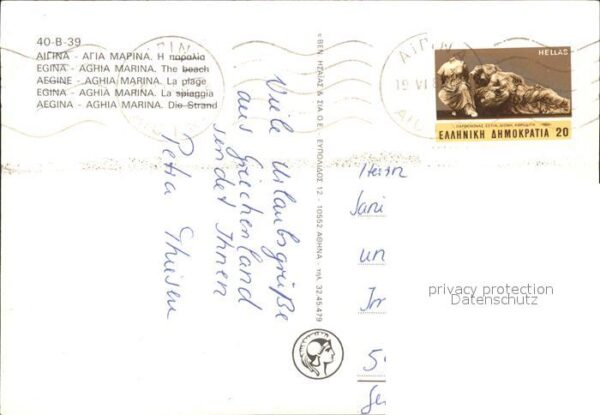 40-B-39
ΑΙΓΙΝΑ - ΑΓΙΑ ΜΑΡΙΝΑ. Η παραλία
EGINA - AGHIA MARINA. The beach
AEGINE - AGHIA MARINA. La plage
EGINA - AGHIA MARINA. La spiaggia
AEGINA - AGHIA MARINA. Die Strand
Viele Urlaubsgrüße
aus Griechenland
sendet Ihnen
Petra Thissen
ΕΥΠΟΛΙΔΟΣ 12 - 10552 ΑΘΗΝΑ - τηλ. 32.45.479
ΑΙΓΙΝΑ
19 VI
HELLAS
ΕΛΛΗΝΙΚΗ ΔΗΜΟΚΡΑΤΙΑ 20
un
Im
5
privacy protection
Datenschutz